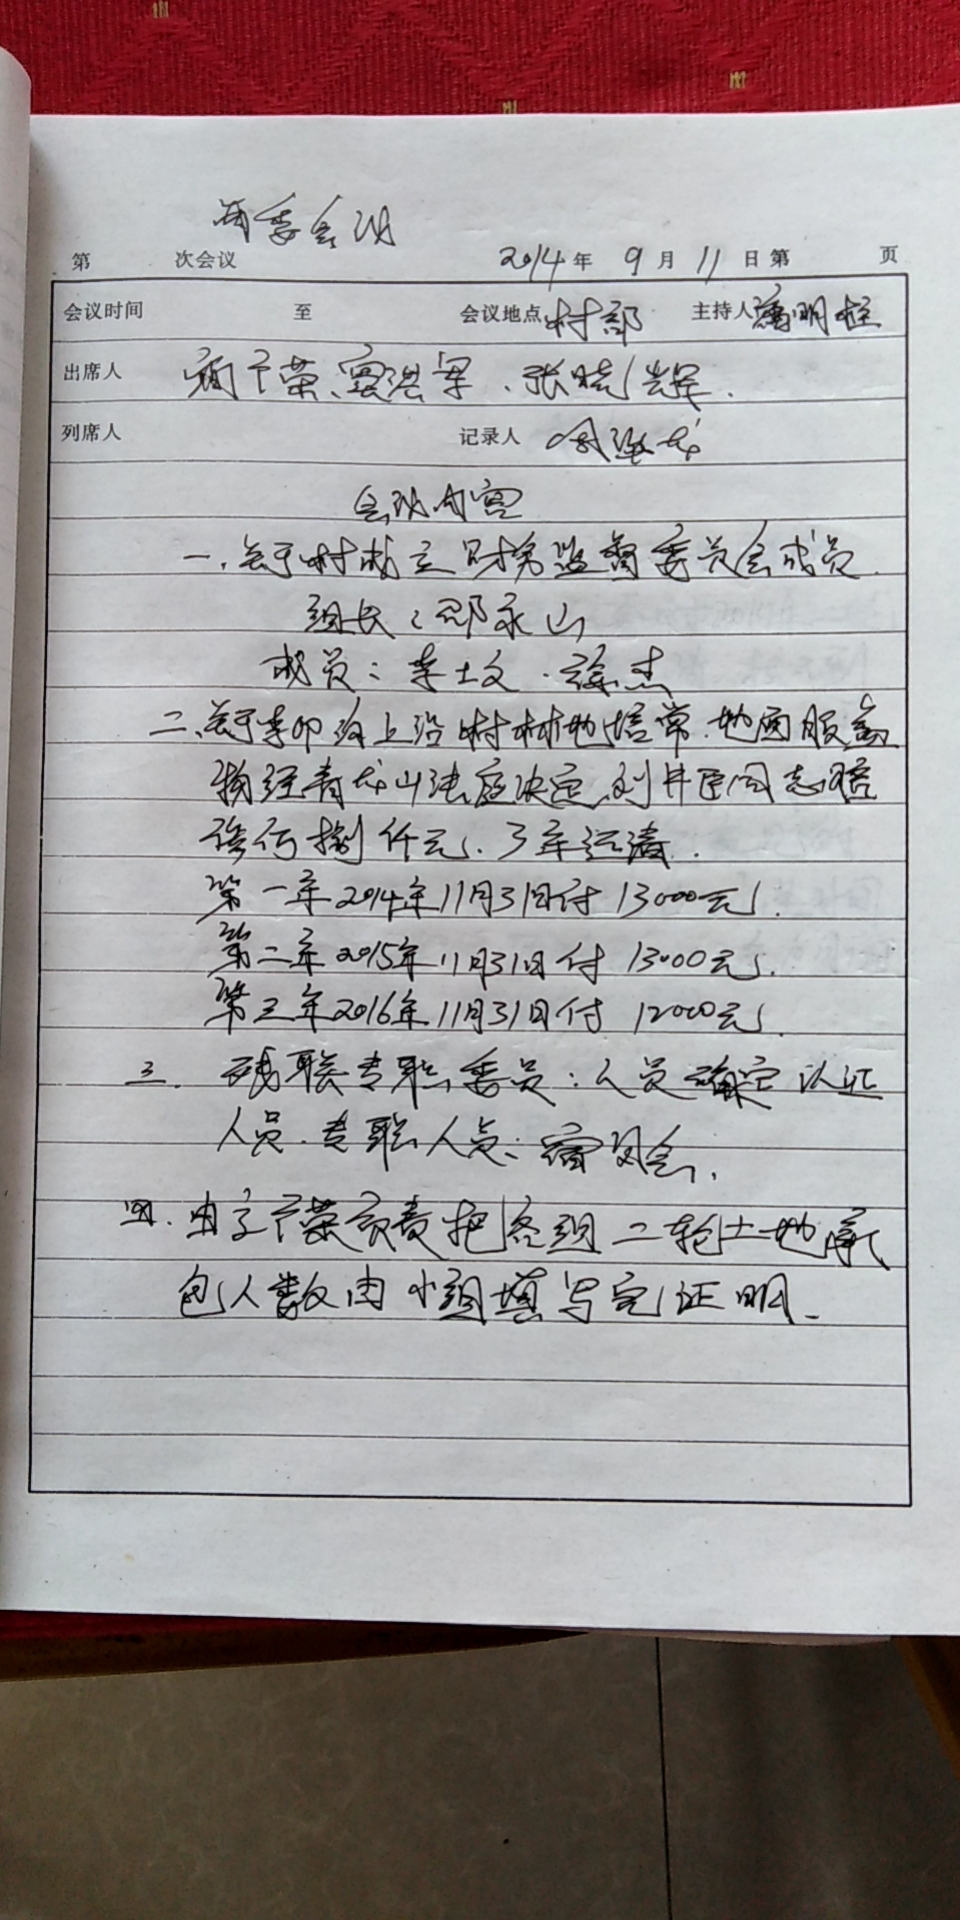 两委会议
第 次会议 2014年 9月 11日 第 页
会议时间 至 会议地点 村部 主持人 明柱
出席人 荣、洪军、张晓辉.
列席人 记录人 周
会议内容
一、关于村成立财务监督委员会成员.
组长:邵永山
成员:李士文.徐杰
二、关于李 上 村林地 常.地面附着
物经青龙山法庭决定 同志
捌仟元.3年还清.
第一年2014年11月31日付13000元.
第二年2015年11月31日付13000元.
第三年2016年11月31日付12000元.
三. 残联专职委员:人员确定认证
人员.专职人员:会.
四.由 荣负责把各组二轮土地承
包人数由小组填写完证明.